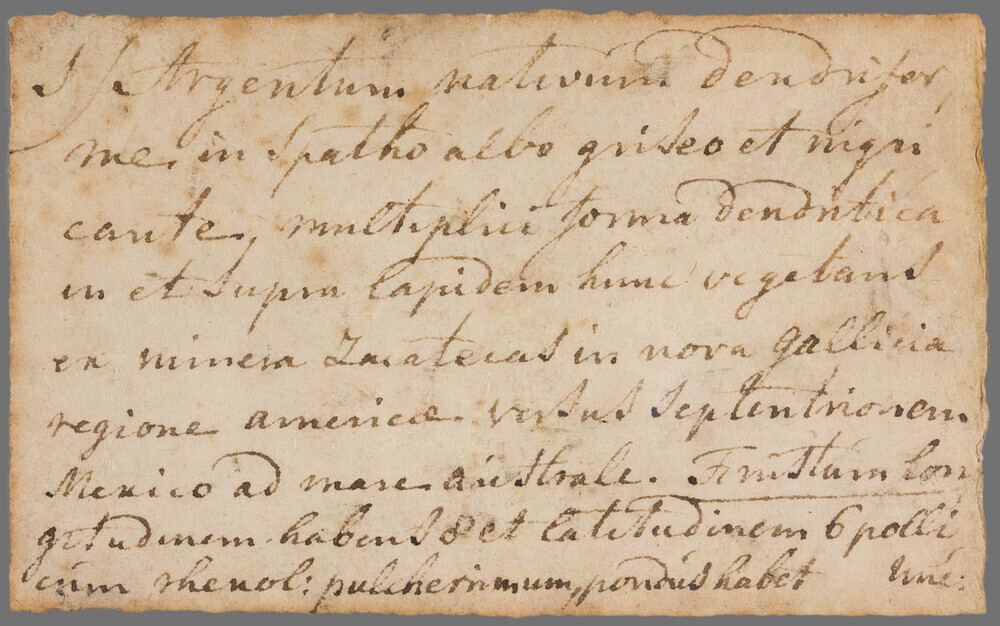 Argentum nativum dendrifor,
me, in Spatho albo griseo et nigri
cante, multiplici forma dendritica
in et supra lapidem hunc vegetans
ex minera Zacatecas in nova gallicia
regione americæ versus septentrionem
Mexico ad mare australe. Frustum lon,
gitudinem habens 8 et latitudinem 6 polli
cum rhenol: pulcherimum, pondus habet unc: